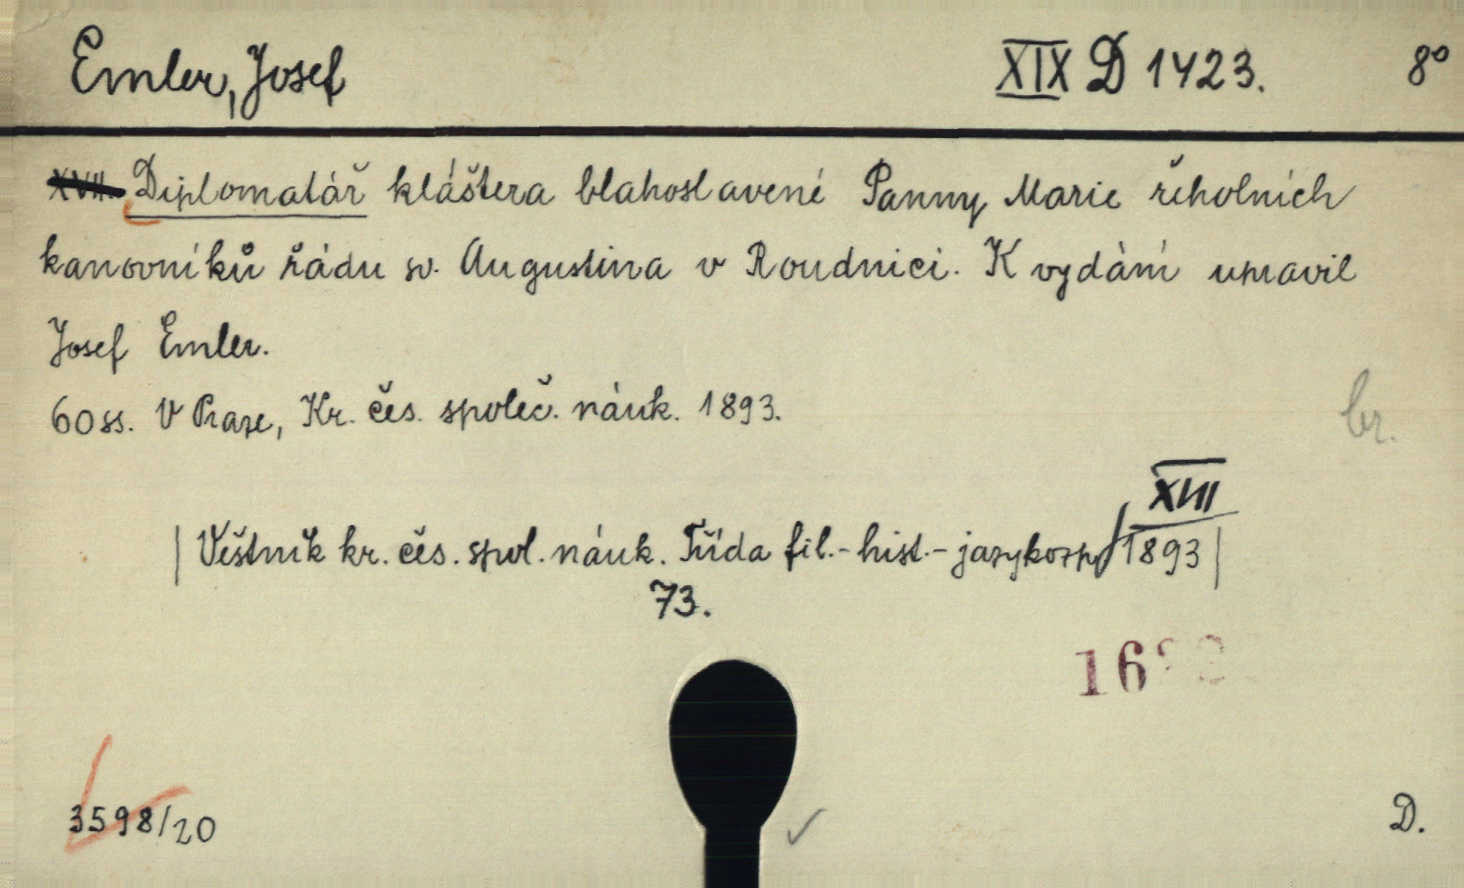 Emler, Josef XIX D 1423. 8°
XVII. Diplomatář kláštera blahoslavené Panny Marie řeholních
kanovníků řádu sv. Augustina v Roudnici. K vydání upravil
Josef Emler.
60 ss. V Praze, Kr. čes. společ. náuk. 1893.
br.
XVII
| Věstník kr. čes. spol. náuk. Třída fil.-hist.-jazykozp. 1893 |
73.
16
3598/20 D.